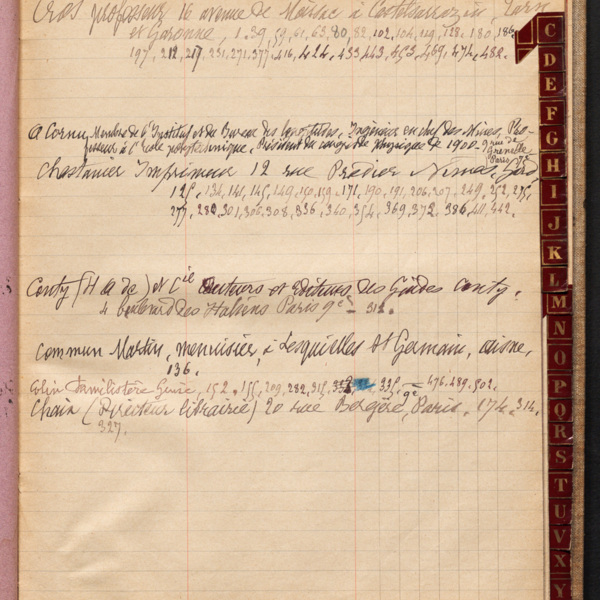 Cros professeur 16 avenue de Moissac à Castelsarrazin, Tarn
et Garonne, 1. 39, 59, 61, 63, 80, 82, 102, 104, 119, 128, 180, 186,
197, 212, 217, 231, 271, 377, 416, 424, 433, 443, 453, 469, 474, 482.
A Cornu, Membre de l'Institut et du Bureau des longitudes, Ingénieur en chef des Mines, Pro-
fesseur à l'école polytechnique, Président du congrès de physique de 1900 - 9 rue de
Grenelle,
Paris
Chastanier Imprimeur 12 rue Pradier Nimes, Gard,
125, 134, 141, 145, 149, 150, 159, 171, 190, 191, 206, 207, 249, 252, 275,
277, 280, 301, 306, 308, 336, 340, 354, 369, 372, 386, 442.
Conty (H A de) et Cie Auteurs et editeurs des Guides Conty,
4 boulevard des Italiens Paris 9e - 312.
Commun Martin, menuisier, à Lesquielles St Germain, aisne,
136.
Colin familistère Guise, 152, 155, 209, 282, 315, 476, 489, 502.
Chaix (Directeur librairie) 20 rue Bergère, Paris, 9e 174, 314,
327.
C
D
E
F
G
H
I
J
K
L
M
N
O
P
Q
R
S
T
U
V
X
Y